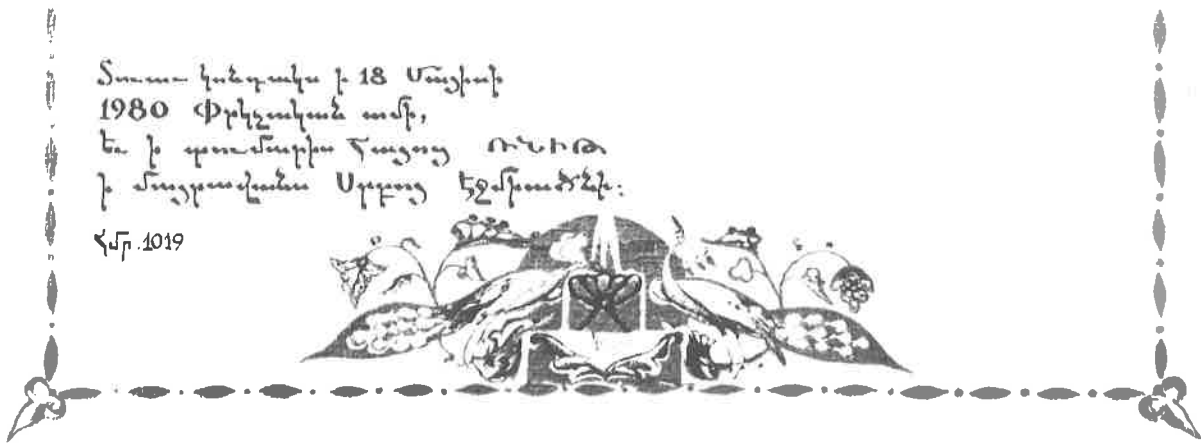 Տուաւ կոնդակս ի 18 Մայիսի
1980 Փրկչական ամի,
Եւ ի տոմարիս Հայոց ՌՆԻԹ
ի մայրավանս Սրբոյ Էջմիածնի:
Հմր. 1019